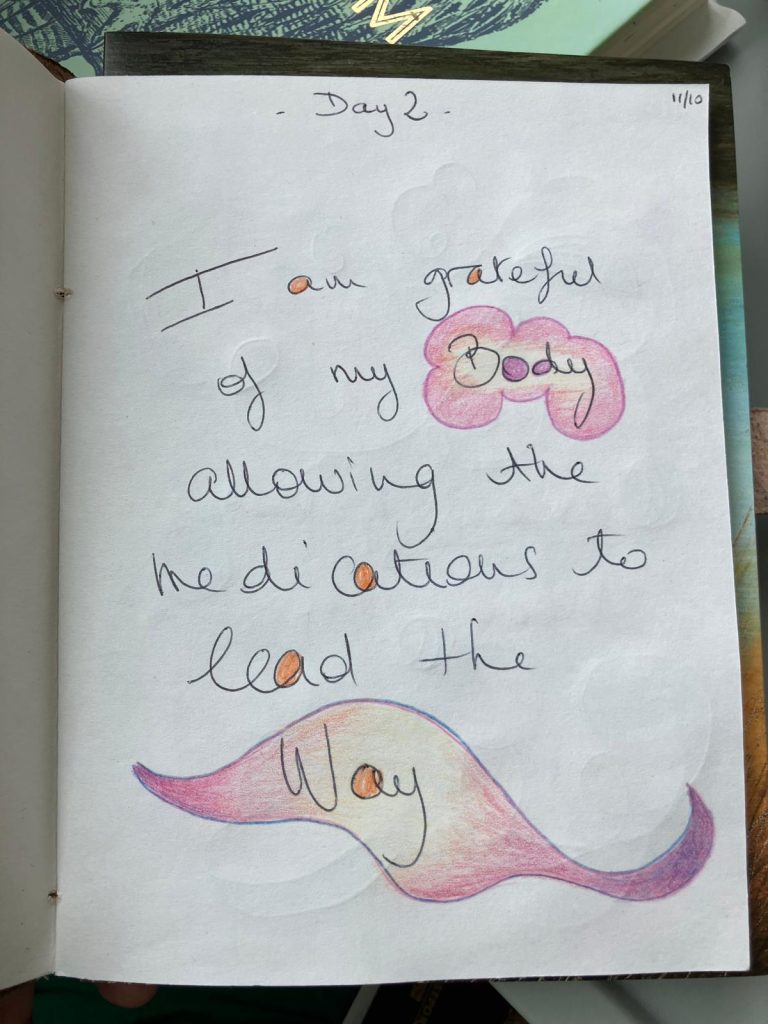 M
- Day 2 -
11/10
I am grateful
of my Body
allowing the
medications to
lead the
Way